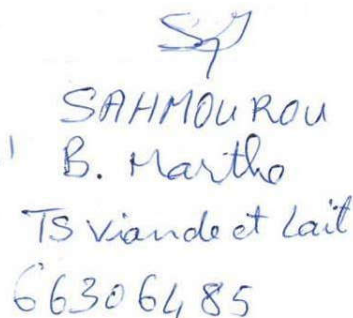 SAHMOUROU
B. Martho
TS Viande et Lait
66306485